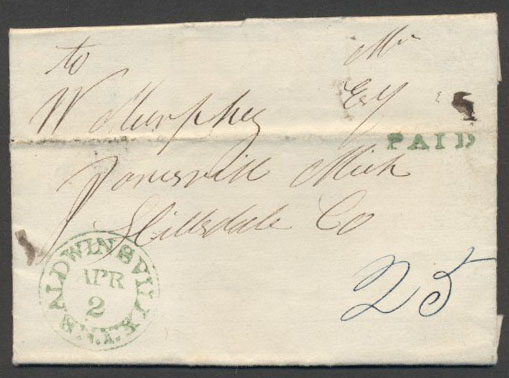 to Mr
W Murphey Esq
PAID
Jonesvill Mich
Hillsdale Co
25
BALDWINSVILLE
APR
2
N.Y.